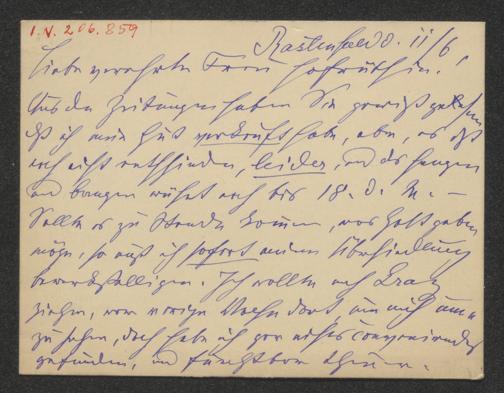 I. N. 206.859
Rastenfeld. 11/6,
Liebe verehrte Frau Hofräthin.
Aus den Zeitungen haben Sie gewiß gelesen
daß ich mein Gut verkauft habe, aber, es ist
noch nicht entschieden, leider, und das Hangen
und Bangen währt noch bis 18. d. M. –
Sollte es zu Stande kommen, was Gott geben
möge, so muß ich sofort meine Übersiedlung
bewerkstelligen. Ich wollte nach Graz
ziehen, war vorige Woche dort, um mich um=
zusehen, doch habe ich gar nichts convenirendes
gefunden, und furchtbar theuer.